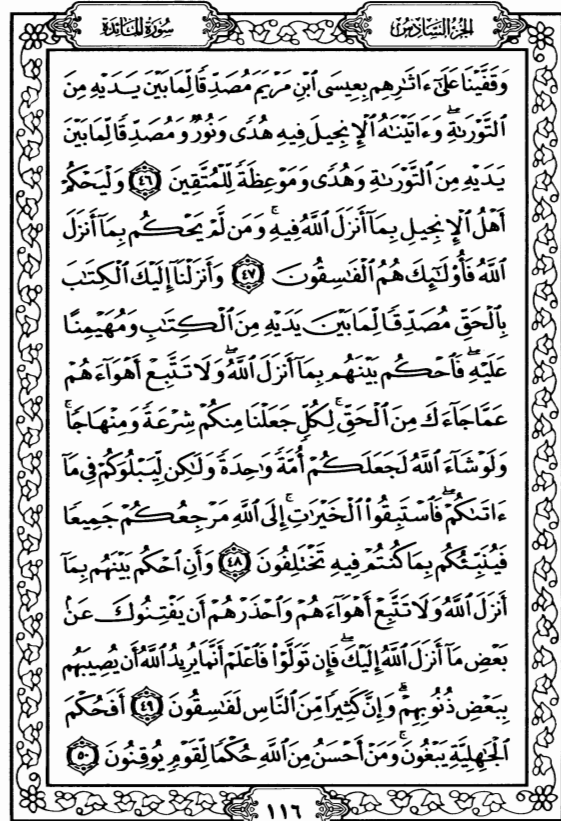 سُورَةُ المَائِدَةِ
الجُزْءُ السَّادِسُ
وَقَفَّيْنَا عَلَىٰٓ ءَاثَٰرِهِم بِعِيسَى ٱبْنِ مَرْيَمَ مُصَدِّقًا لِّمَا بَيْنَ يَدَيْهِ مِنَ
ٱلتَّوْرَىٰةِ ۖ وَءَاتَيْنَٰهُ ٱلْإِنجِيلَ فِيهِ هُدًى وَنُورٌ وَمُصَدِّقًا لِّمَا بَيْنَ
يَدَيْهِ مِنَ ٱلتَّوْرَىٰةِ وَهُدًى وَمَوْعِظَةً لِّلْمُتَّقِينَ ٤٦ وَلْيَحْكُمْ
أَهْلُ ٱلْإِنجِيلِ بِمَآ أَنزَلَ ٱللَّهُ فِيهِ ۚ وَمَن لَّمْ يَحْكُم بِمَآ أَنزَلَ
ٱللَّهُ فَأُو۟لَٰٓئِكَ هُمُ ٱلْفَٰسِقُونَ ٤٧ وَأَنزَلْنَآ إِلَيْكَ ٱلْكِتَٰبَ
بِٱلْحَقِّ مُصَدِّقًا لِّمَا بَيْنَ يَدَيْهِ مِنَ ٱلْكِتَٰبِ وَمُهَيْمِنًا
عَلَيْهِ ۖ فَٱحْكُم بَيْنَهُم بِمَآ أَنزَلَ ٱللَّهُ ۖ وَلَا تَتَّبِعْ أَهْوَآءَهُمْ
عَمَّا جَآءَكَ مِنَ ٱلْحَقِّ ۚ لِكُلٍّ جَعَلْنَا مِنكُمْ شِرْعَةً وَمِنْهَاجًا ۚ
وَلَوْ شَآءَ ٱللَّهُ لَجَعَلَكُمْ أُمَّةً وَٰحِدَةً وَلَٰكِن لِّيَبْلُوَكُمْ فِى مَآ
ءَاتَىٰكُمْ ۖ فَٱسْتَبِقُوا۟ ٱلْخَيْرَٰتِ ۚ إِلَى ٱللَّهِ مَرْجِعُكُمْ جَمِيعًا
فَيُنَبِّئُكُم بِمَا كُنتُمْ فِيهِ تَخْتَلِفُونَ ٤٨ وَأَنِ ٱحْكُم بَيْنَهُم بِمَآ
أَنزَلَ ٱللَّهُ وَلَا تَتَّبِعْ أَهْوَآءَهُمْ وَٱحْذَرْهُمْ أَن يَفْتِنُوكَ عَنۢ
بَعْضِ مَآ أَنزَلَ ٱللَّهُ إِلَيْكَ ۖ فَإِن تَوَلَّوْا۟ فَٱعْلَمْ أَنَّمَا يُرِيدُ ٱللَّهُ أَن يُصِيبَهُم
بِبَعْضِ ذُنُوبِهِمْ ۗ وَإِنَّ كَثِيرًا مِّنَ ٱلنَّاسِ لَفَٰسِقُونَ ٤٩ أَفَحُكْمَ
ٱلْجَٰهِلِيَّةِ يَبْغُونَ ۚ وَمَنْ أَحْسَنُ مِنَ ٱللَّهِ حُكْمًا لِّقَوْمٍ يُوقِنُونَ ٥٠
١١٦